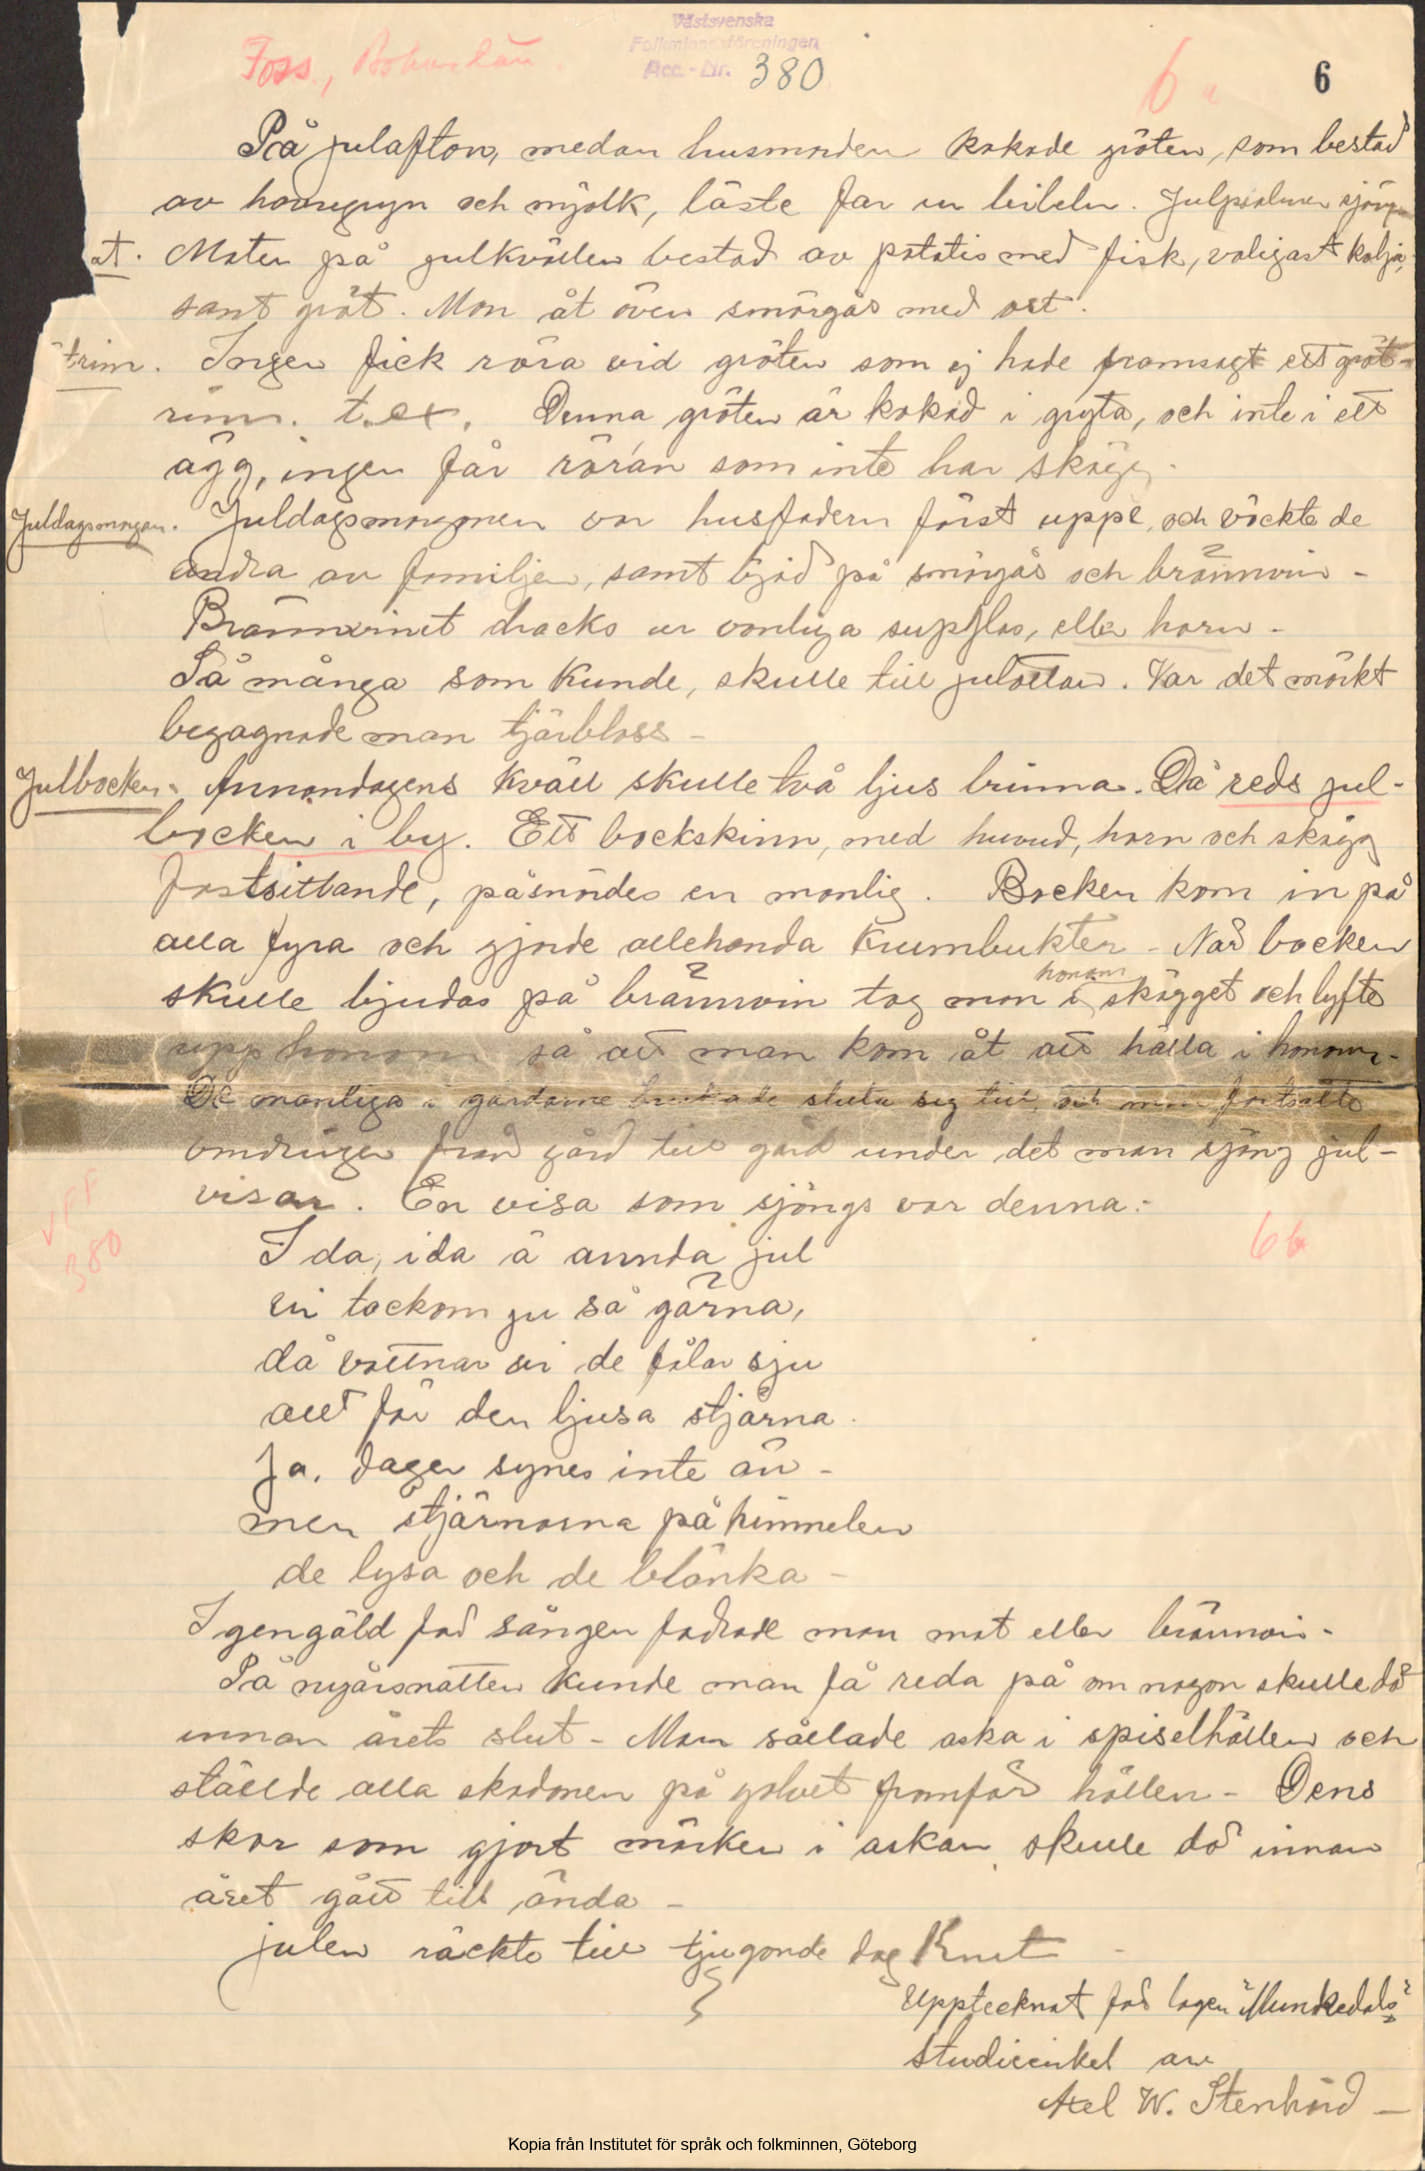 Västsvenska
Folkminnesföreningen
Acc.-Nr. 380
Foss, Bohuslän.
6 a
6
På julafton, medan husmodern kokade gröten, som bestod
av havregryn och mjölk, läste far ur bibeln. Julpsalmer sjöngs
at. Maten på julkvällen bestod av potatis med fisk, valigast kolja,
samt gröt. Man åt även smörgås med ost.
trim. Ingen fick röra vid gröten som ej hade framsagt ett gröt-
rim. t.ex. Denna gröten är kokad i gryta, och inte i ett
ägg, ingen får rör'an som inte har skägg.
Juldagsmorgon. Juldagsmorgonen var husfadern först uppe, och väckte de
andra av familjen, samt bjöd på smörgås och brännvin -
Brännvinet dracks ur vanliga supglas, eller horn -
Så många som kunde, skulle till julottan. Var det mörkt
begagnade man tjärbloss -
Julbocken. Annandagens kväll skulle två ljus brinna. Då reds jul-
bocken i by. Ett bockskinn, med huvud, horn och skägg
fastsittande, påsnördes en manlig. Bocken kom in på
alla fyra och gjorde allehanda krumbukter - När bocken
skulle bjudas på brännvin tog man honom i skägget och lyfte
upp honom så att man kom åt att hälla i honom -
De manliga i gårdarne brukade sluta sig till, och man fortsatte
omdringen från gård till gård under det man sjöng jul-
visor. En visa som sjöngs var denna:-
VFF
380
6b
I da, ida ä annda jul
vi tackom ju så gärna,
då vattnar vi de fålar sju
allt för den ljusa stjärna.
Ja, dagen synes inte än -
men stjärnorna på himmelen
de lysa och de blänka -
I gengäld för sången fodrade man mat eller brännvin -
På nyårsnatten kunde man få reda på om någon skulle dö
innan årets slut - Man sållade aska i spiselhällen och
ställde alla skodonen på golvet framför hällen - Dens
skor som gjort märken i askan, skulle dö innan
året gått till ända -
julen räckte till tjugonde dag Knut -
Upptecknat för logen "Munkedals"
studiecirkel av
Axel W. Stenhård -
Kopia från Institutet för språk och folkminnen, Göteborg